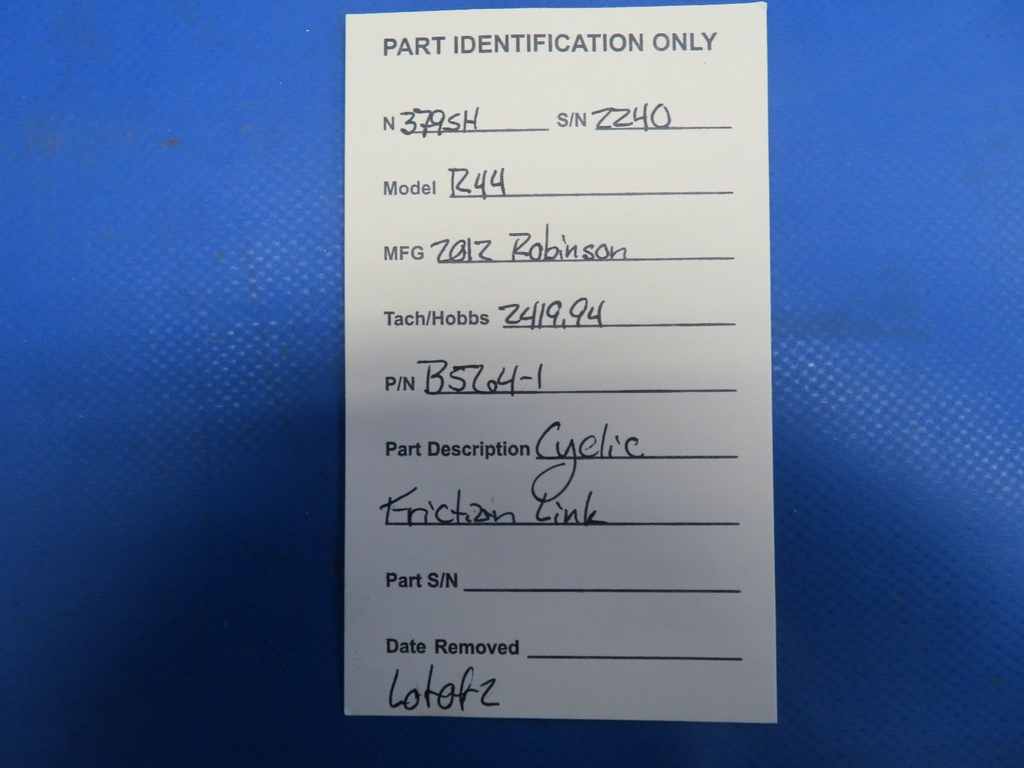 PART IDENTIFICATION ONLY
N 379SH S/N 2240
Model R44
MFG 2012 Robinson
Tach/Hobbs 2419.94
P/N B5264-1
Part Description Cyclic
Friction Link
Part S/N
Date Removed
Lot of 2